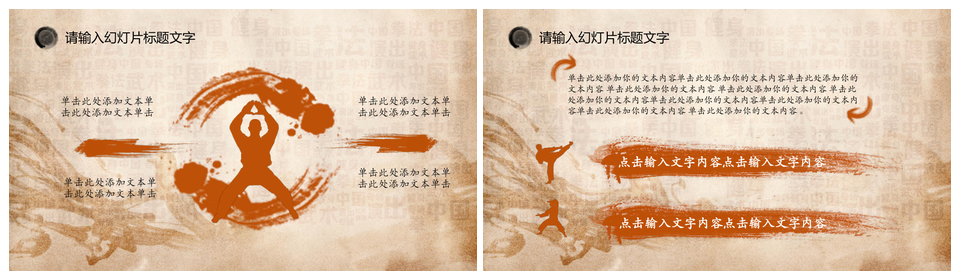 请输入幻灯片标题文字
单击此处添加文本单
击此处添加文本单击
单击此处添加文本单
击此处添加文本单击
单击此处添加文本单
击此处添加文本单击
单击此处添加文本单
击此处添加文本单击
请输入幻灯片标题文字
单击此处添加你的文本内容单击此处添加你的文本内容单击此处添加你的
文本内容 单击此处添加你的文本内容 单击此处添加你的文本内容 单击此
处添加你的文本内容单击此处添加你的文本内容单击此处添加你的文本内
容单击此处添加你的文本内容 单击此处添加你的文本内容 。
点击输入文字内容点击输入文字内容
点击输入文字内容点击输入文字内容